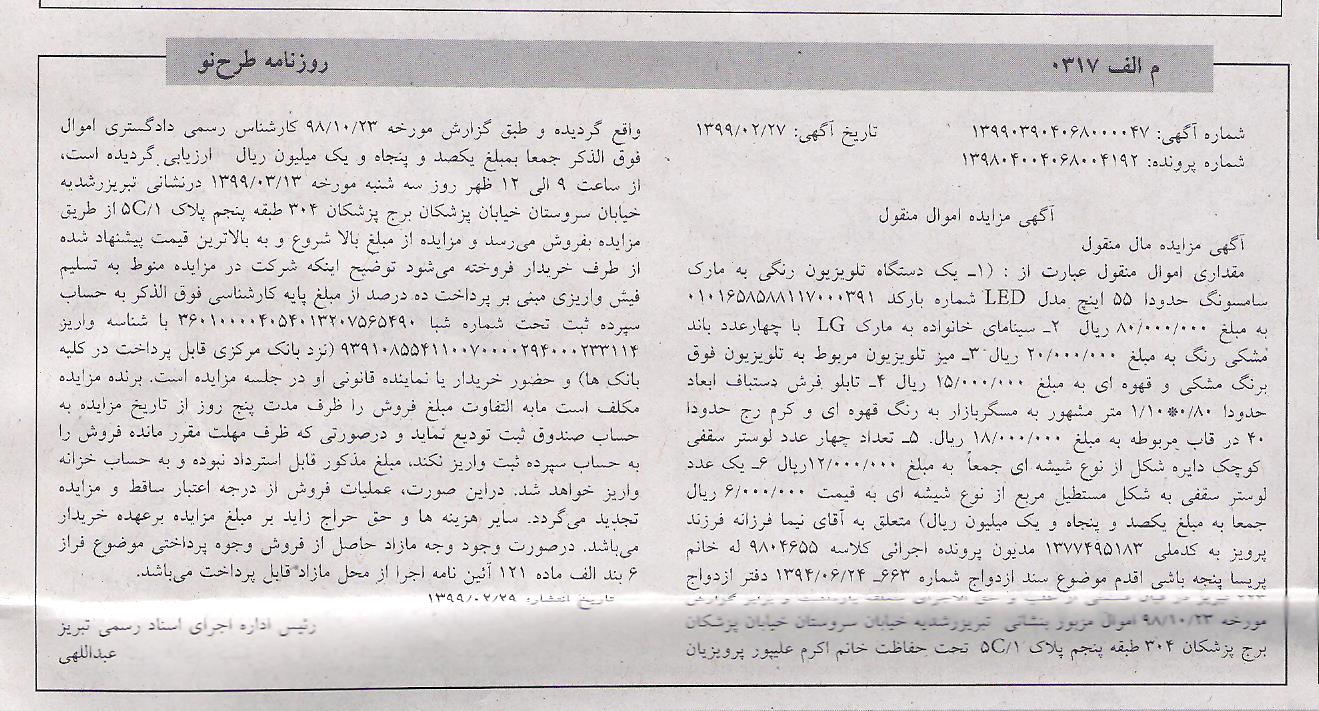 م الف ۰۳۱۷
روزنامه طرح‌نو
شماره آگهی: ۱۳۹۹۰۳۹۰۴۰۶۸۰۰۰۰۴۷
تاریخ آگهی: ۱۳۹۹/۰۲/۲۷
شماره پرونده: ۱۳۹۸۰۴۰۰۴۰۶۸۰۰۴۱۹۲
آگهی مزایده اموال منقول
آگهی مزایده مال منقول
مقداری اموال منقول عبارت از : (۱ـ یک دستگاه تلویزیون رنگی به مارک
سامسونگ حدودا ۵۵ اینچ مدل LED شماره بارکد ۰۱۰۱۶۵۸۵۸۸۱۱۷۰۰۰۳۹۱
به مبلغ ۸۰/۰۰۰/۰۰۰ ریال ۲ـ سینمای خانواده به مارک LG با چهارعدد باند
مشکی رنگ به مبلغ ۲۰/۰۰۰/۰۰۰ ریال ۳ـ میز تلویزیون مربوط به تلویزیون فوق
برنگ مشکی و قهوه ای به مبلغ ۱۵/۰۰۰/۰۰۰ ریال ۴ـ تابلو فرش دستباف ابعاد
حدودا ۱/۱۰*۰/۸۰ متر مشهور به مسگربازار به رنگ قهوه ای و کرم رج حدودا
۴۰ در قاب مربوطه به مبلغ ۱۸/۰۰۰/۰۰۰ ریال. ۵ـ تعداد چهار عدد لوستر سقفی
کوچک دایره شکل از نوع شیشه ای جمعاً به مبلغ ۱۲/۰۰۰/۰۰۰ریال ۶ـ یک عدد
لوستر سقفی به شکل مستطیل مربع از نوع شیشه ای به قیمت ۶/۰۰۰/۰۰۰ ریال
جمعا به مبلغ یکصد و پنجاه و یک میلیون ریال) متعلق به آقای نیما فرزانه فرزند
پرویز به کدملی ۱۳۷۷۴۹۵۱۸۳ مدیون پرونده اجرائی کلاسه ۹۸۰۴۶۵۵ له خانم
پریسا پنجه باشی اقدم موضوع سند ازدواج شماره ۶۶۳ـ ۱۳۹۴/۰۶/۲۴ دفتر ازدواج
تبریز در قبال قسمتی از طلب و حق الاجرای متعلقه بازداشت و برابر گزارش
مورخه ۹۸/۱۰/۲۳ اموال مزبور بنشانی تبریزرشدیه خیابان سروستان خیابان پزشکان
برج پزشکان ۳۰۴ طبقه پنجم پلاک ۵C/۱ تحت حفاظت خانم اکرم علیپور پرویزیان
واقع گردیده و طبق گزارش مورخه ۹۸/۱۰/۲۳ کارشناس رسمی دادگستری اموال
فوق الذکر جمعا بمبلغ یکصد و پنجاه و یک میلیون ریال ارزیابی گردیده است،
از ساعت ۹ الی ۱۲ ظهر روز سه شنبه مورخه ۱۳۹۹/۰۳/۱۳ درنشانی تبریزرشدیه
خیابان سروستان خیابان پزشکان برج پزشکان ۳۰۴ طبقه پنجم پلاک ۵C/۱ از طریق
مزایده بفروش می‌رسد و مزایده از مبلغ بالا شروع و به بالاترین قیمت پیشنهاد شده
از طرف خریدار فروخته می‌شود توضیح اینکه شرکت در مزایده منوط به تسلیم
فیش واریزی مبنی بر پرداخت ده درصد از مبلغ پایه کارشناسی فوق الذکر به حساب
سپرده ثبت تحت شماره شبا ۳۶۰۱۰۰۰۰۴۰۵۴۰۱۳۲۰۷۵۶۵۴۹۰ با شناسه واریز
۹۳۹۱۰۸۵۵۴۱۱۰۰۷۰۰۰۰۲۹۴۰۰۰۲۳۳۱۱۴ (نزد بانک مرکزی قابل پرداخت در کلیه
بانک ها) و حضور خریدار یا نماینده قانونی او در جلسه مزایده است. برنده مزایده
مکلف است مابه التفاوت مبلغ فروش را ظرف مدت پنج روز از تاریخ مزایده به
حساب صندوق ثبت تودیع نماید و درصورتی که ظرف مهلت مقرر مانده فروش را
به حساب سپرده ثبت واریز نکند، مبلغ مذکور قابل استرداد نبوده و به حساب خزانه
واریز خواهد شد. دراین صورت، عملیات فروش از درجه اعتبار ساقط و مزایده
تجدید می‌گردد. سایر هزینه ها و حق حراج زاید بر مبلغ مزایده برعهده خریدار
می‌باشد. درصورت وجود وجه مازاد حاصل از فروش وجوه پرداختی موضوع فراز
۶ بند الف ماده ۱۲۱ آئین نامه اجرا از محل مازاد قابل پرداخت می‌باشد.
تاریخ انتشار: ۱۳۹۹/۰۲/۲۹
رئیس اداره اجرای اسناد رسمی تبریز
عبداللهی